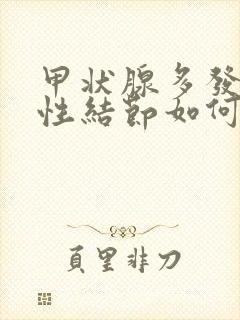 甲状腺多發
性結節如何
頁里非刀